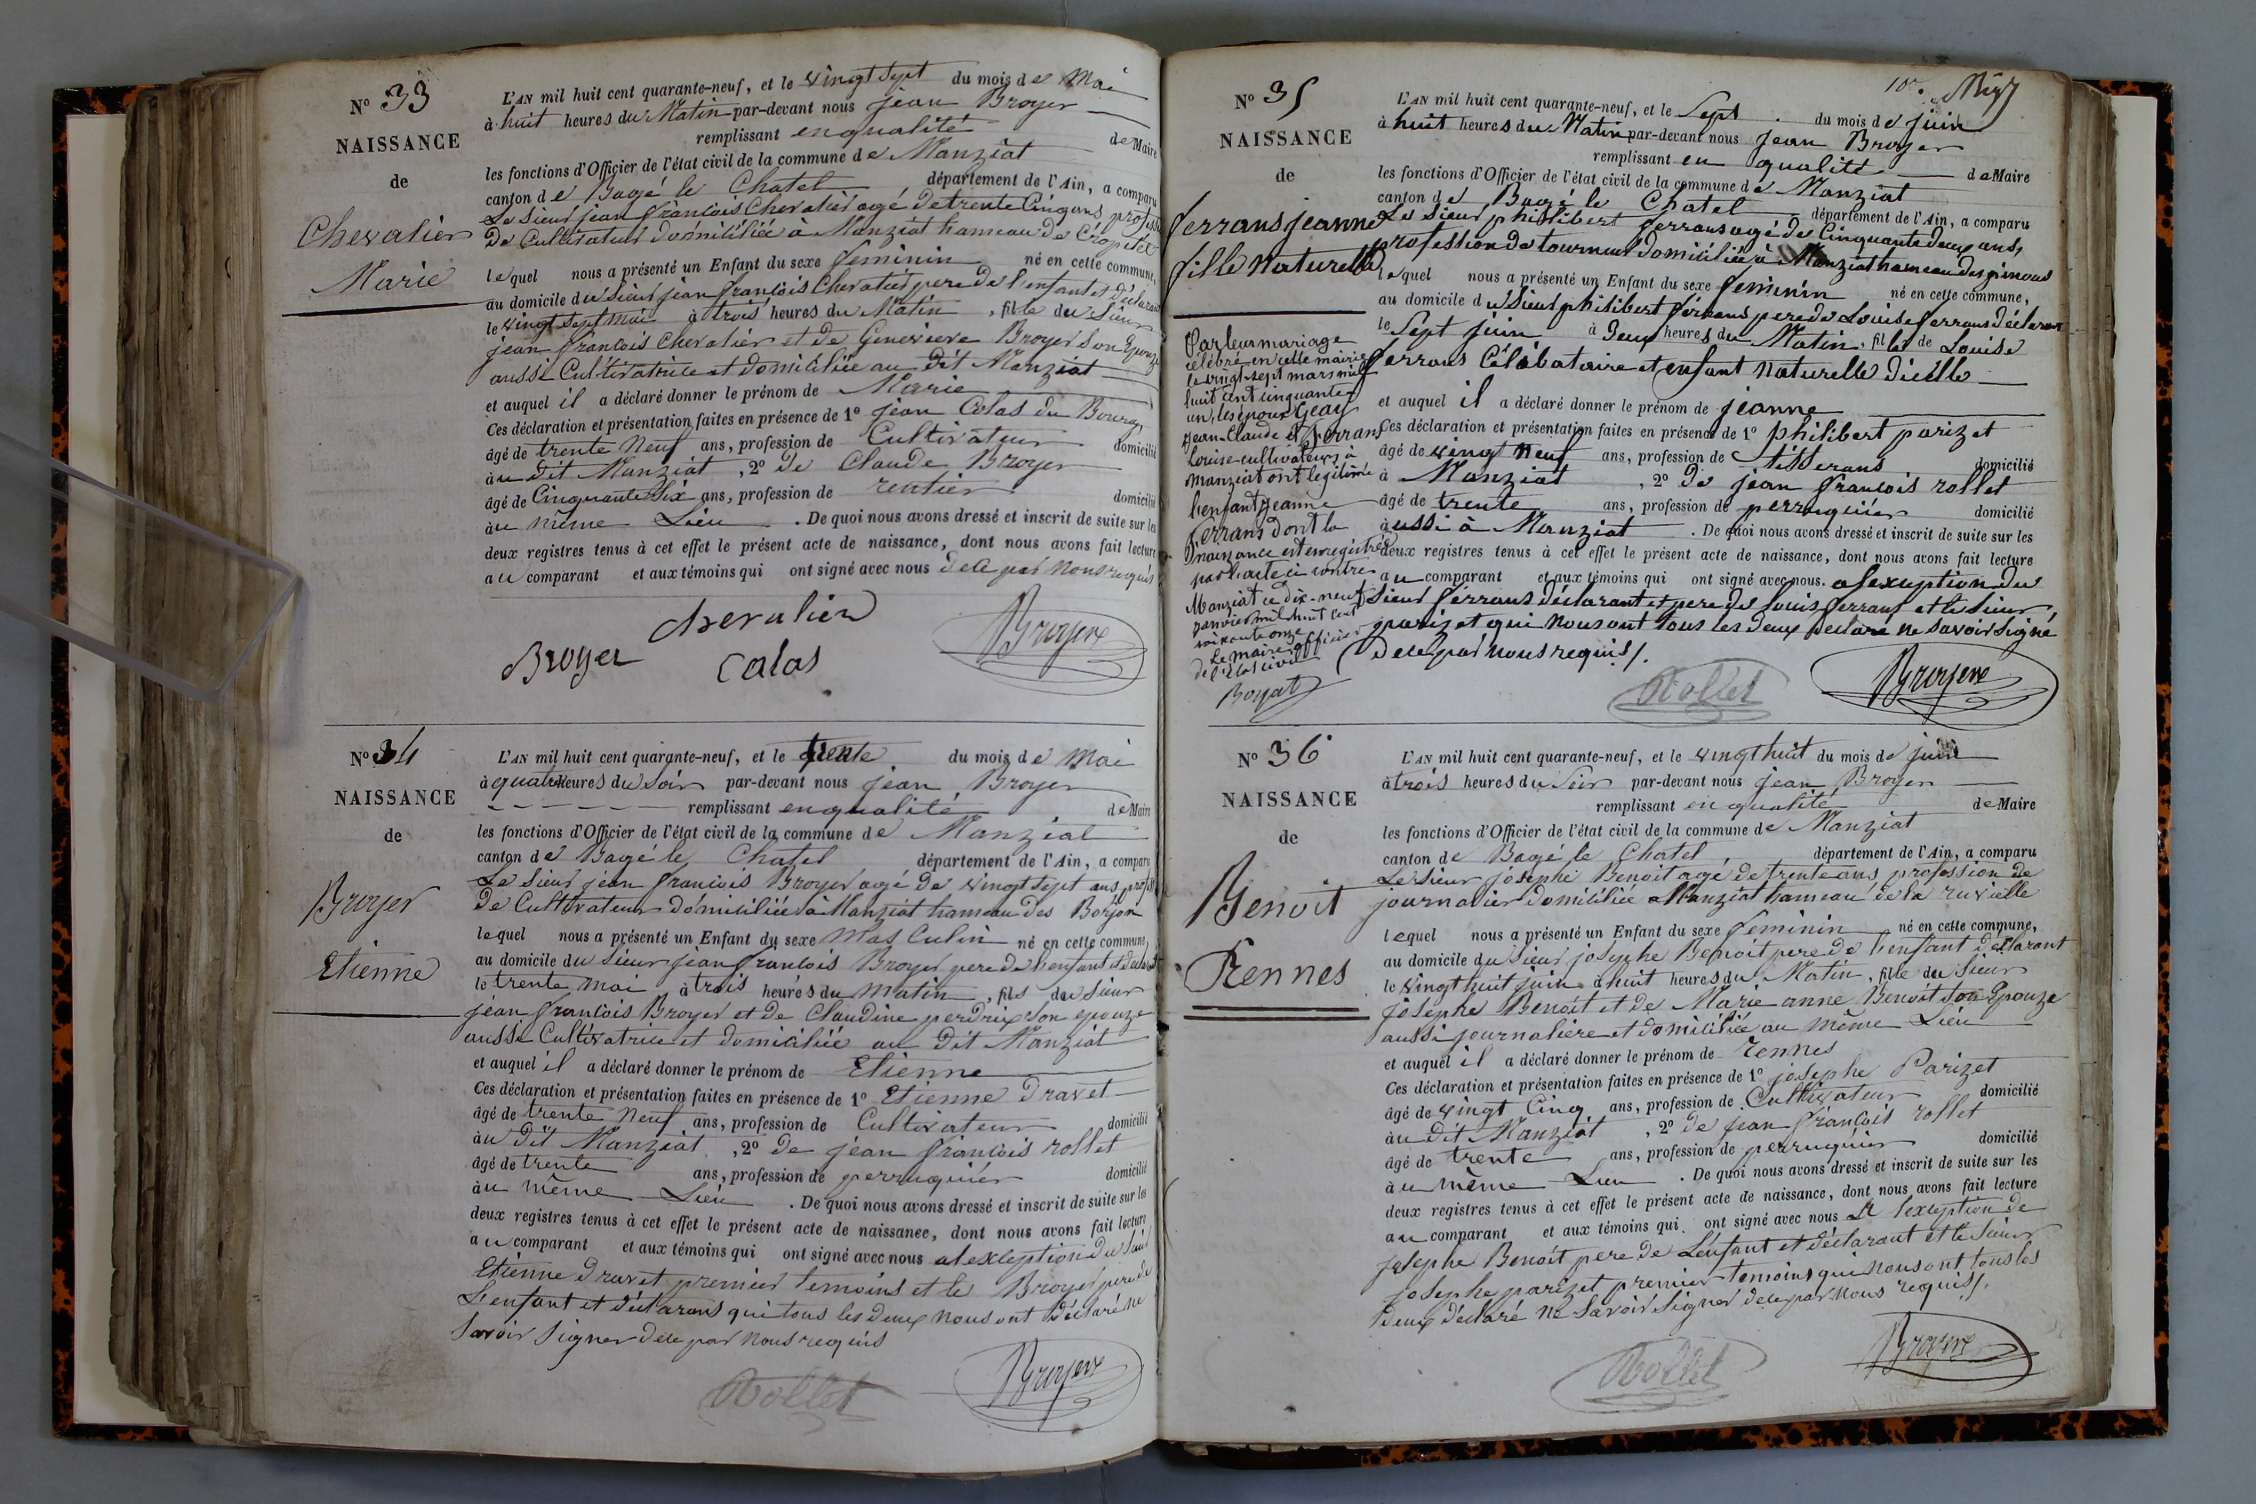 N° 33
NAISSANCE
de
Chevalier
Marie
L'AN mil huit cent quarante-neuf, et le vingt sept du mois de Mai
à huit heures du Matin par-devant nous jean Broyer
remplissant en qualité de Maire
les fonctions d'Officier de l'état civil de la commune de Manziat
canton de Bagé le Chatel département de l'Ain, a comparu
Le Sieur jean françois Chevalier agé de trente Cinq ans profession
De Cultivateur domiciliée à Manziat hameau de Cropetet
lequel nous a présenté un Enfant du sexe feminin né en cette commune,
au domicile du Sieur jean françois Chevalier pere de l'enfant et déclarant
le vingt sept mai à trois heures du Matin, fille du Sieur
jean françois Chevalier et de Genevieve Broyer Son Epouze
aussi Cultivatrice et domiciliée au Dit Manziat
et auquel il a déclaré donner le prénom de Marie
Ces déclaration et présentation faites en présence de 1° jean Colas du Bourg
âgé de trente Neuf ans, profession de Cultivateur domicilié
àu Dit Manziat, 2° De Claude Broyer
âgé de Cinquante Six ans, profession de rentier domicilié
àu même Lieu. De quoi nous avons dressé et inscrit de suite sur les
deux registres tenus à cet effet le présent acte de naissance, dont nous avons fait lecture
au comparant et aux témoins qui ont signé avec nous De ce par Nous requis
Chevalier
Broyer Colas Broyer
N° 34
NAISSANCE
de
Broyer
Etienne
L'AN mil huit cent quarante-neuf, et le trente du mois de Mai
à quatre heures du Soir par-devant nous jean Broyer
remplissant en qualité de Maire
les fonctions d'Officier de l'état civil de la commune de Manziat
canton de Bagé le Chatel département de l'Ain, a comparu
Le Sieur jean françois Broyer agé De vingt sept ans profession
De Cultivateur domiciliée à Manziat hameau des Borjon
lequel nous a présenté un Enfant du sexe Masculin né en cette commune,
au domicile du Sieur jean françois Broyer pere de l'enfant et déclarant
le trente mai à trois heures du matin, fils du Sieur
jean françois Broyer et de Claudine perdrix Son épouze
aussi Cultivatrice et domiciliée au Dit Manziat
et auquel il a déclaré donner le prénom de Etienne
Ces déclaration et présentation faites en présence de 1° Etienne Dravet
âgé de trente Neuf ans, profession de Cultivateur domicilié
àu Dit Manziat, 2° De jean françois rollet
âgé de trente ans, profession de perruquier domicilié
àu même Lieu. De quoi nous avons dressé et inscrit de suite sur les
deux registres tenus à cet effet le présent acte de naissance, dont nous avons fait lecture
au comparant et aux témoins qui ont signé avec nous al exception du Sieur
Etienne Dravet premier temoins et le Broyer pere de
L'enfant et déclarans qui tous les deux Nous ont Déclaré ne
Savoir Signer de ce par Nous requis
Rollet Broyer
N° 35
NAISSANCE
de
ferrans jeanne
fille Naturelle
Par leur mariage
célébré en cette mairie
le vingt-sept mars mil
huit cent cinquante
un, les époux Geay
Jean-Claude et Ferrans
Louise cultivateurs à
Manziat ont légitimé
l'enfant Jeanne
Ferrans dont la
naissance est enregistrée
par l'acte ci contre
Manziat ce dix-neuf
janvier mil huit cent
soixante onze
Le maire officier
de l'état civil
Boyat
L'AN mil huit cent quarante-neuf, et le Sept du mois de juin
à huit heures du Matin par-devant nous jean Broyer
remplissant en qualité de Maire
les fonctions d'Officier de l'état civil de la commune de Manziat
canton de Bagé le Chatel département de l'Ain, a comparu
Le Sieur philibert ferrans agé de Cinquante deux ans,
profession de tourneur domiciliée à Manziat hameau des pinoux
lequel nous a présenté un Enfant du sexe feminin né en cette commune,
au domicile du Sieur philibert ferrans pere de Louise ferrans déclarant
le Sept juin à Deux heures du Matin, fille de Louise
ferrans Célibataire et enfant Naturelle D'iélle
et auquel il a déclaré donner le prénom de jeanne
Ces déclaration et présentation faites en présence de 1° philibert parizet
âgé de vingt Neuf ans, profession de tisserans domicilié
à Manziat, 2° De jean françois rollet
âgé de trente ans, profession de perruquier domicilié
àussi à Manziat. De quoi nous avons dressé et inscrit de suite sur les
deux registres tenus à cet effet le présent acte de naissance, dont nous avons fait lecture
au comparant et aux témoins qui ont signé avec nous. al exeuption du
Sieur ferrans déclarant et pere de Louis ferrans et le Sieur
parizet qui Nous ont tous les deux Declare ne Savoir Signé
De ce par Nous requis/.
Rollet Broyer
N° 36
NAISSANCE
de
Benoit
Rennes
L'AN mil huit cent quarante-neuf, et le vingt huit du mois de juin
à trois heures du Soir par-devant nous jean Broyer
remplissant en qualité de Maire
les fonctions d'Officier de l'état civil de la commune de Manziat
canton de Bagé le Chatel département de l'Ain, a comparu
Le Sieur josephe Benoit agé de trente ans profession de
journalier domiciliée a Manziat hameau de la ruvielle
lequel nous a présenté un Enfant du sexe feminin né en cette commune,
au domicile du Sieur josephe Benoit pere de l'enfant déclarant
le vingt huit juin à huit heures du Matin, fille du Sieur
josephe Benoit et de Marie anne Benoit Son Epouze
aussi journaliere et domiciliée au même Lieu
et auquel il a déclaré donner le prénom de Rennes
Ces déclaration et présentation faites en présence de 1° josephe Parizet
âgé de vingt Cinq ans, profession de Cultivateur domicilié
àu Dit Manziat, 2° De jean françois rollet
âgé de trente ans, profession de perruquier domicilié
àu même Lieu. De quoi nous avons dressé et inscrit de suite sur les
deux registres tenus à cet effet le présent acte de naissance, dont nous avons fait lecture
au comparant et aux témoins qui ont signé avec nous a l'exception de
josephe Benoit pere de L'enfant et déclarant et le Sieur
josephe parizet premier temoins qui Nous ont tous les
deux déclaré Ne Savoir Signer de ce par Nous requis/.
Rollet Broyer